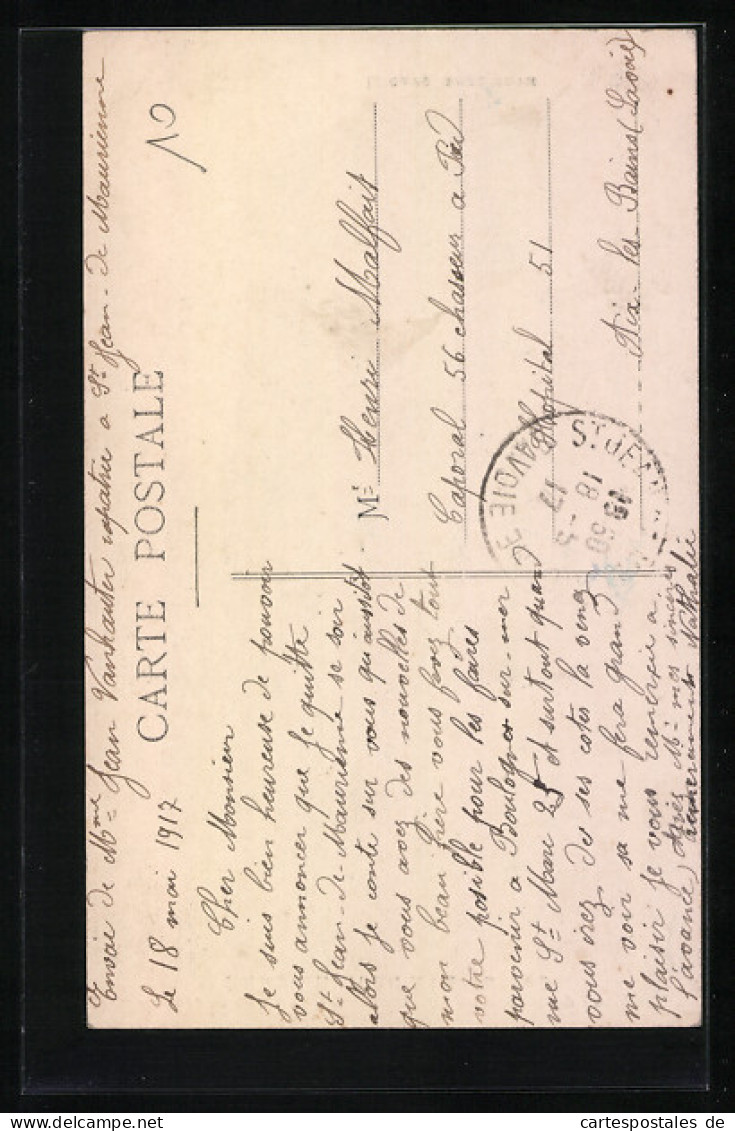 Envoie de Mme Jean Vanhauter rapatrié a St Jean-de Maurienne
CARTE POSTALE
Le 18 mai 1917
10
Cher Monsieur
Je suis bien heureuse de pouvoir
vous annoncer que je quitte
St Jean-de-Maurienne se soir
alors je conte sur vous qui aussitôt
que vous avez des nouvelles de
mon beau frère vous ferez tout
votre posible pour les faires
parvenir a Boulogne-sur-mer
rue St Marc 25 et surtout quand
vous irez de ses cotes la venez
me voir sa me fera grand
plaisir je vous remercie a
l'avance Mr mes sincères
Nathalie
Mr Henri Malfait
Caporal 56 chasseur a Pied
Hopital 51
Aix-les-Bains (Savoie)
ST JEAN
SAVOIE
18 -5
17
cartespostales de